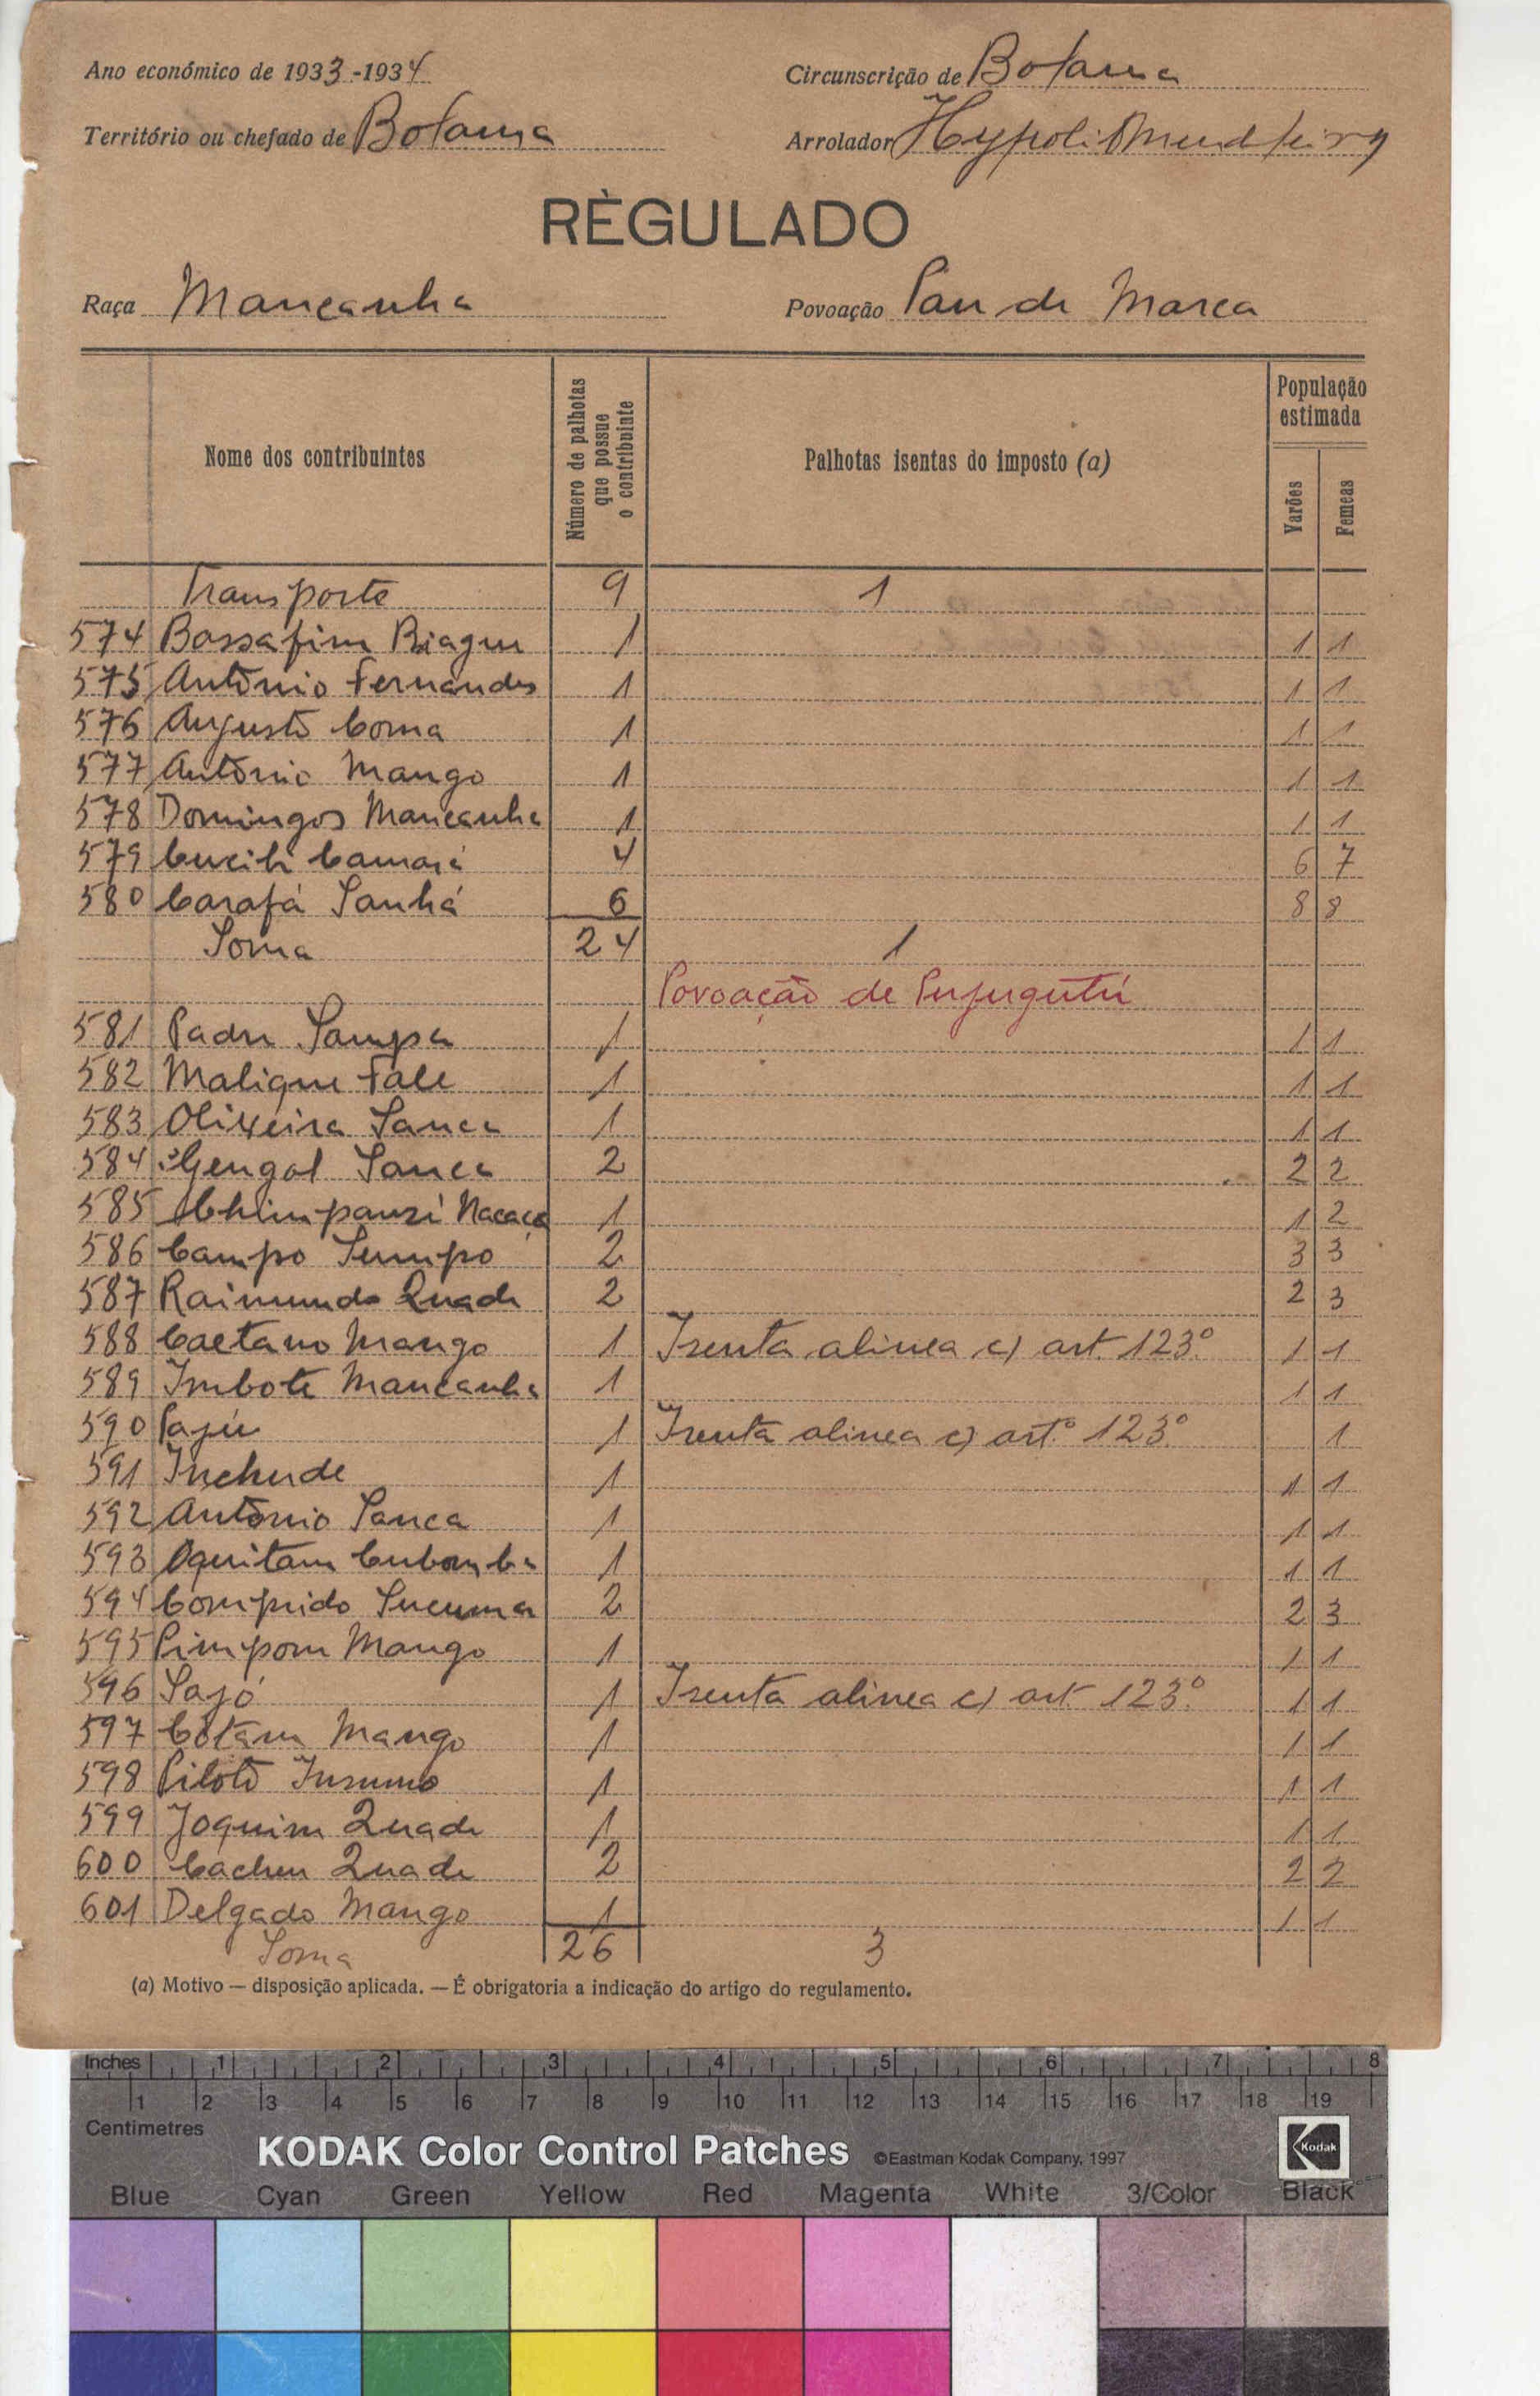 Ano económico de 1933-1934
Circunscrição de Bolama
Território ou chefado de Bolama
Arrolador Hypoli
RÈGULADO
Raça Mancanha
Povoação Pau de Marca
Nome dos contribuintes
Número de palhotas que possue o contribuinte
Palhotas isentas do imposto (a)
População estimada
Varões
Femeas
Transporte 9 1
574 Bossafim Biague 1 1 1
575 António Fernandes 1 1 1
576 Augusto Coma 1 1 1
577 António Mango 1 1 1
578 Domingos Mancanha 1 1 1
579 Camará 4 6 7
580 Carafá Sanhá 6 8 8
Soma 24 1
Povoação de
581 Padre Sampa 1 1 1
582 Malique Fale 1 1 1
583 Oliveira Sanca 1 1 1
584 Gengol Sanca 2 2 2
585 Chimpanzé Nacaça 1 1 2
586 Campo Sumpo 2 3 3
587 Raimundo Quade 2 2 3
588 Caetano Mango 1 Isenta alinea c) art. 123º 1 1
589 Imbote Mancanha 1 1 1
590 Pajú 1 Isenta alinea c) artº 123º 1
591 Inchude 1 1 1
592 António Sanca 1 1 1
593 Oquitam 1 1 1
594 Comprido 2 2 3
595 Pimpom Mango 1 1 1
596 Sajó 1 Isenta alinea c) art. 123º 1 1
597 Cótam Mango 1 1 1
598 Piloto 1 1 1
599 Joquim Quade 1 1 1
600 Cacheu Quade 2 2 2
601 Delgado Mango 1 1 1
Soma 26 3
(a) Motivo — disposição aplicada. — É obrigatoria a indicação do artigo do regulamento.
Inches 1 2 3 4 5 6 7 8
1 2 3 4 5 6 7 8 9 10 11 12 13 14 15 16 17 18 19
Centimetres
KODAK Color Control Patches ©Eastman Kodak Company, 1997 Kodak
Blue Cyan Green Yellow Red Magenta White 3/Color Black